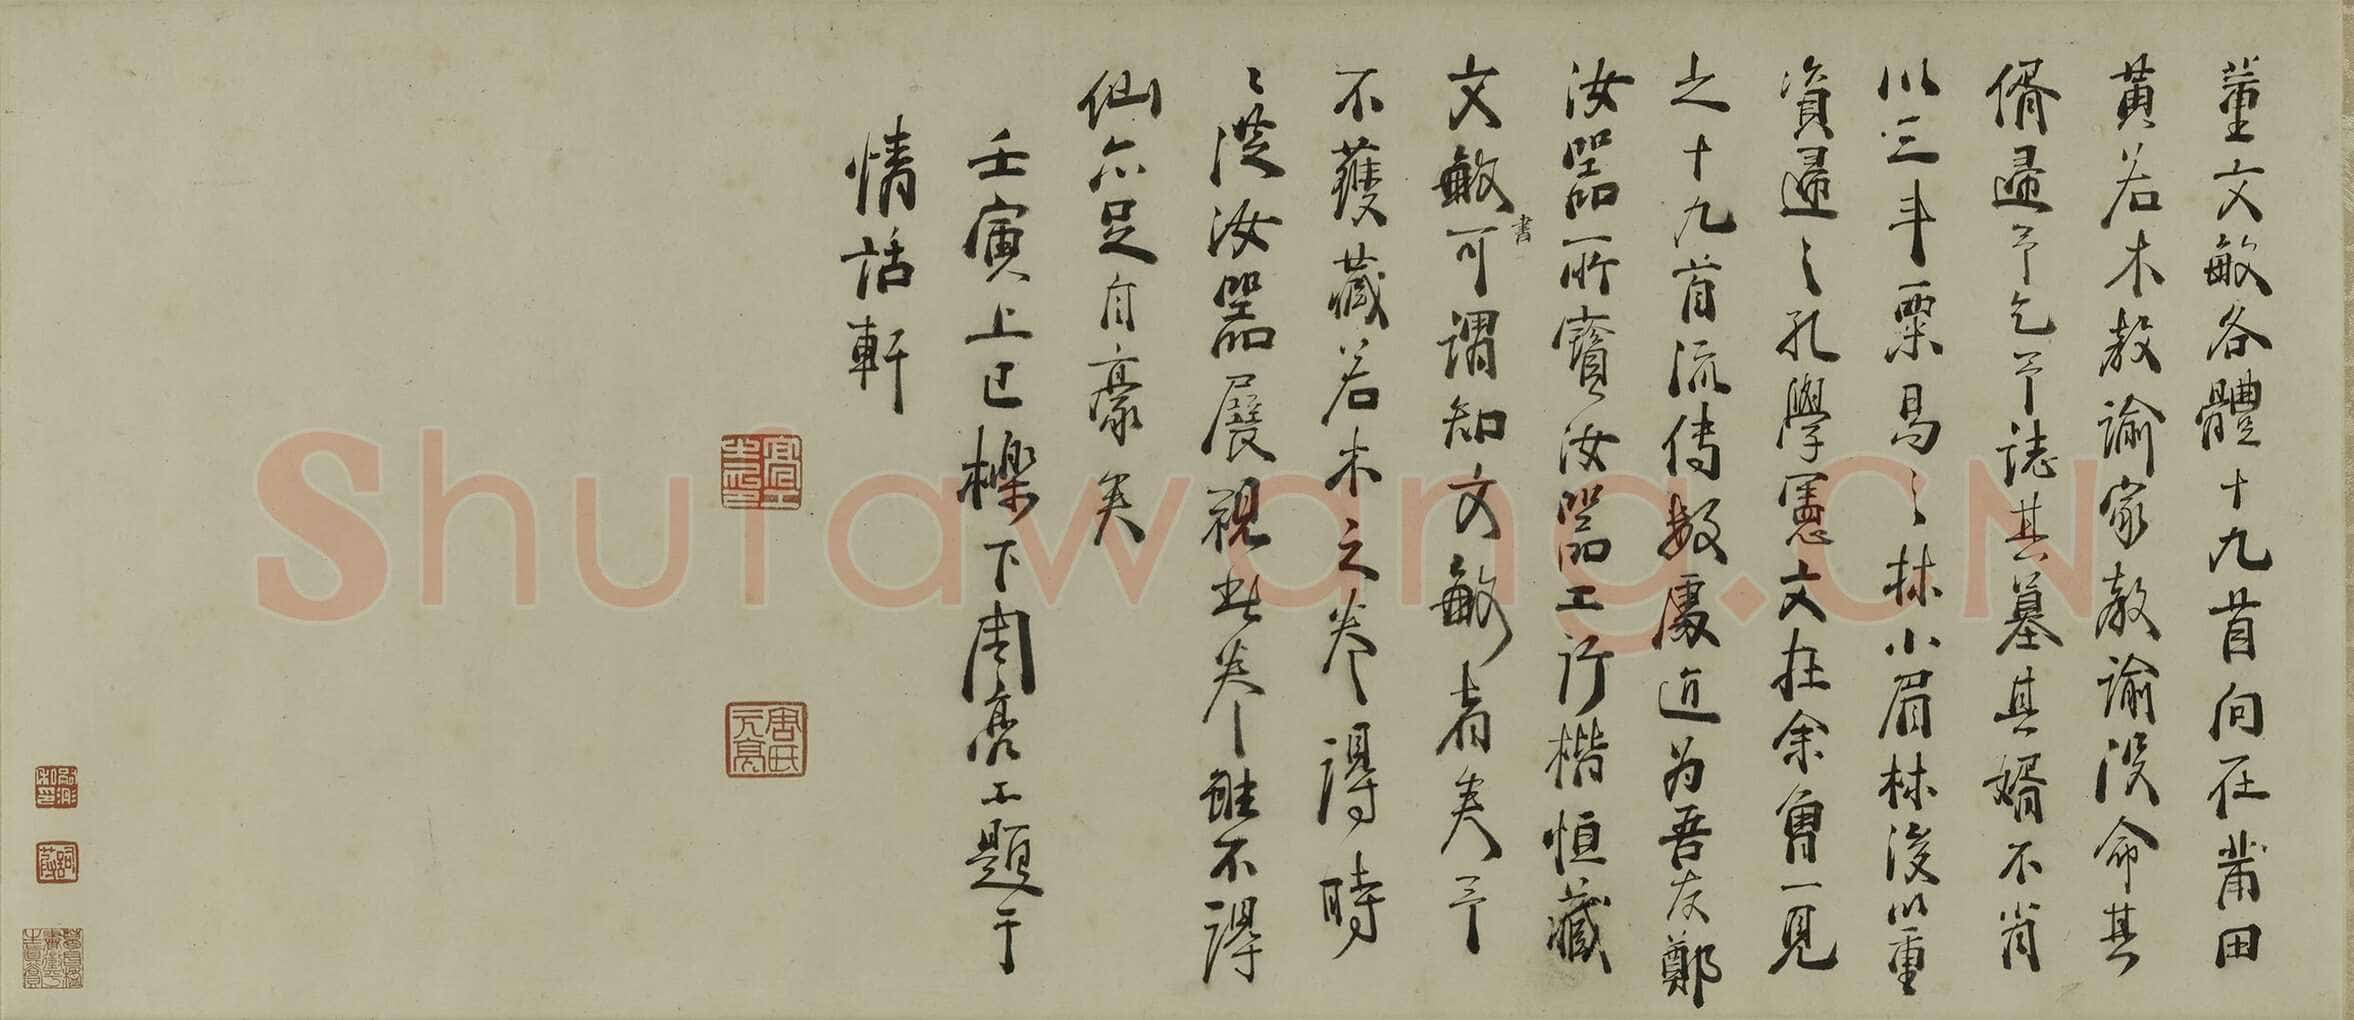 董文敏各體十九首向在莆田
黃若木教諭家教諭沒命其
偦歸予乞予誌其墓其婿不肖
以三斗粟易之林小眉林後以重
資歸之孔學憲文在余曾一見
之十九首流傳數處近為吾友鄭
汝器所寶汝器工行楷恒藏
文敏書可謂知文敏者矣予
不獲藏若木之卷得時
時從汝器展視此卷雖不得
仙亦足自豪矣
壬寅上巳櫟下周亮工題于
情話軒
周氏元亮
Shufawang.CN